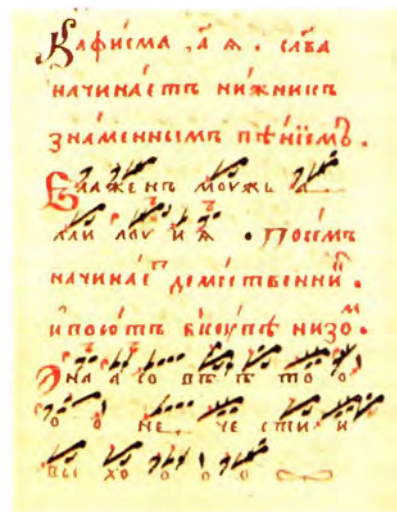 Кафи́сма ,а҃ ѧ . сл҃ва
начина́етъ ни́жникъ
зна́меннымъ пѣ́нїемъ .
Блаженъ моужь а
лли лоу и ѧ . Посе́мъ
начина́етъ деме́ственный .
и пою́тъ вкоу́пѣ низо́м .
а со вѣ тъ то о
о о не че сти и
вы хо о о о